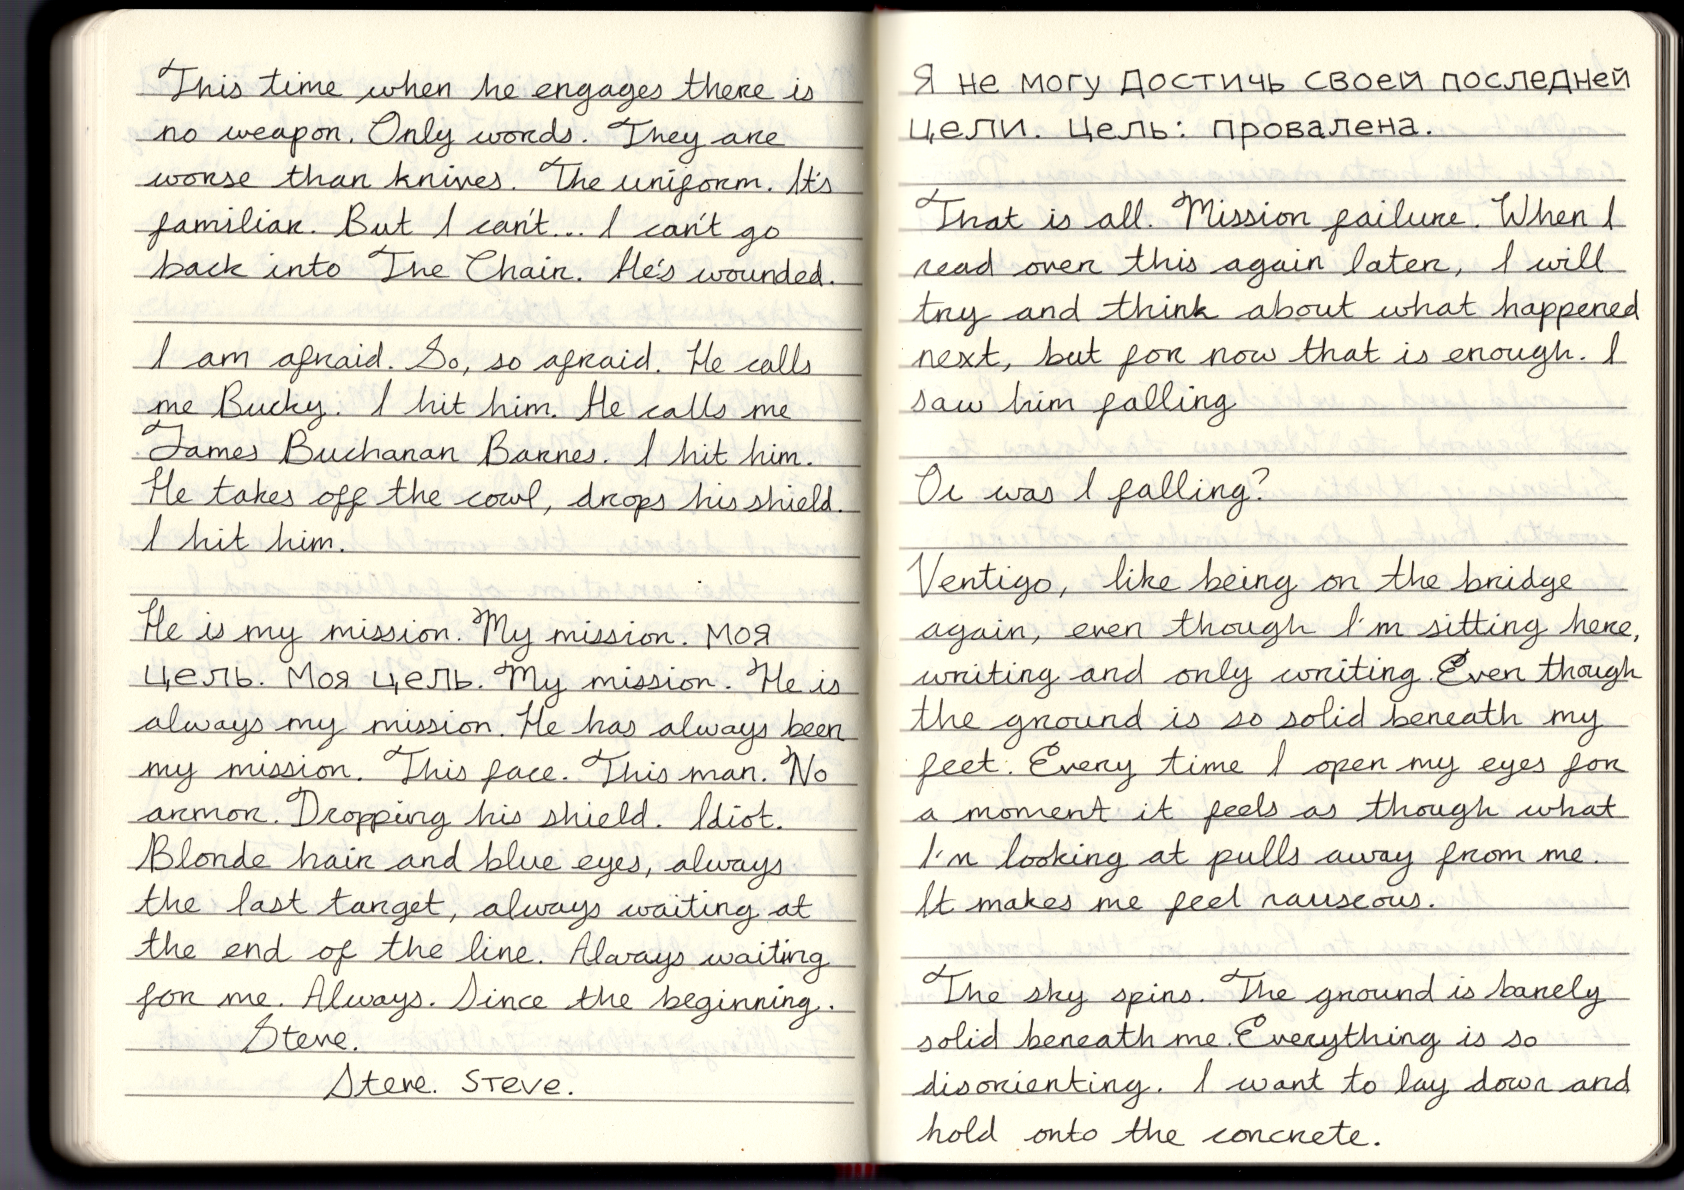 This time when he engages there is
no weapon. Only words. They are
worse than knives. The uniform. It's
familiar. But I can't... I can't go
back into The Chair. He's wounded.
I am afraid. So, so afraid. He calls
me Bucky. I hit him. He calls me
James Buchanan Barnes. I hit him.
He takes off the cowl, drops his shield.
I hit him.
He is my mission. My mission. Моя
цель. Моя цель. My mission. He is
always my mission. He has always been
my mission. This face. This man. No
armor. Dropping his shield. Idiot.
Blonde hair and blue eyes, always
the last target, always waiting at
the end of the line. Always waiting
for me. Always. Since the beginning.
Steve.
Steve. STEVE.
Я не могу достичь своей последней
цели. Цель: провалена.
That is all. Mission failure. When I
read over this again later, I will
try and think about what happened
next, but for now that is enough. I
saw him falling
Or was I falling?
Vertigo, like being on the bridge
again, even though I'm sitting here,
writing and only writing. Even though
the ground is so solid beneath my
feet. Every time I open my eyes for
a moment it feels as though what
I'm looking at pulls away from me.
It makes me feel nauseous.
The sky spins. The ground is barely
solid beneath me. Everything is so
disorienting. I want to lay down and
hold onto the concrete.